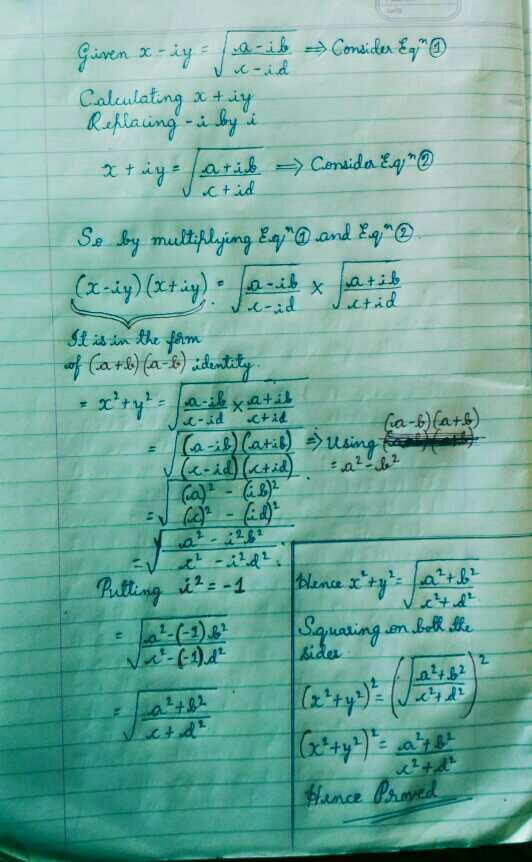 Given x - iy = √(a-ib / c-id) ⟹ Consider Eqⁿ ①
Calculating x + iy
Replacing -i by i
x + iy = √(a+ib / c+id) ⟹ Consider Eqⁿ ②
So by multiplying Eqⁿ ① and Eqⁿ ②.
(x-iy)(x+iy) = √(a-ib / c-id) × √(a+ib / c+id)
It is in the form
of (a+b)(a-b) identity.
= x²+y² = √(a-ib / c-id × a+ib / c+id)
= √((a-ib)(a+ib) / (c-id)(c+id)) ⇒ Using (a-b)(a+b)
= a²-b²
= √((a)² - (ib)² / (c)² - (id)²)
= √(a² - i²b² / c² - i²d²)
Putting i² = -1
= √(a²-(-1)b² / c²-(-1)d²)
= √(a²+b² / c+d²)
Hence x²+y² = √(a²+b² / c²+d²)
Squaring on both the
sides
(x²+y²)² = (√(a²+b² / c²+d²))²
(x²+y²)² = a²+b² / c²+d²
Hence Proved